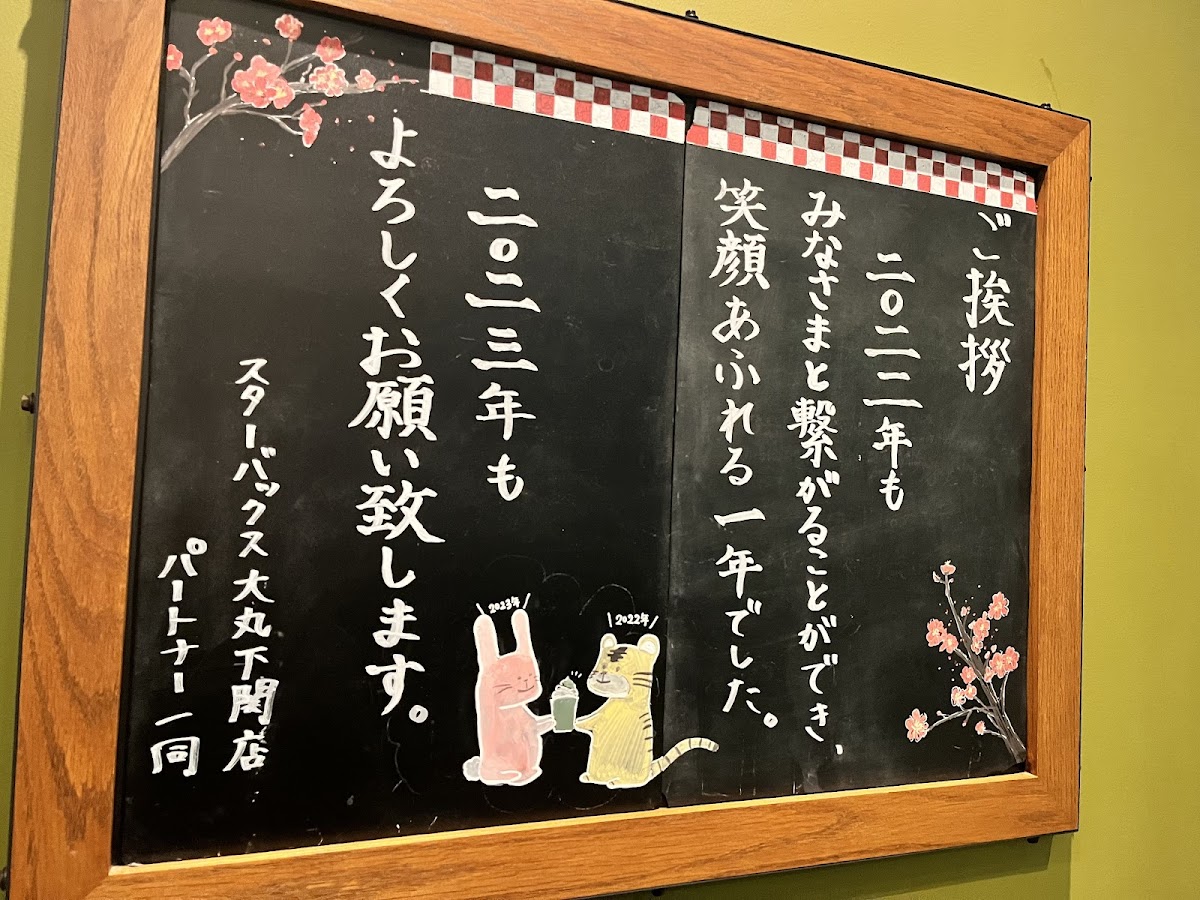 ご挨拶
二〇二二年も
みなさまと繋がることができ、
笑顔あふれる一年でした。
二〇二三年も
よろしくお願い致します。
スターバックス大丸下関店
パートナー一同
2023年
2022年